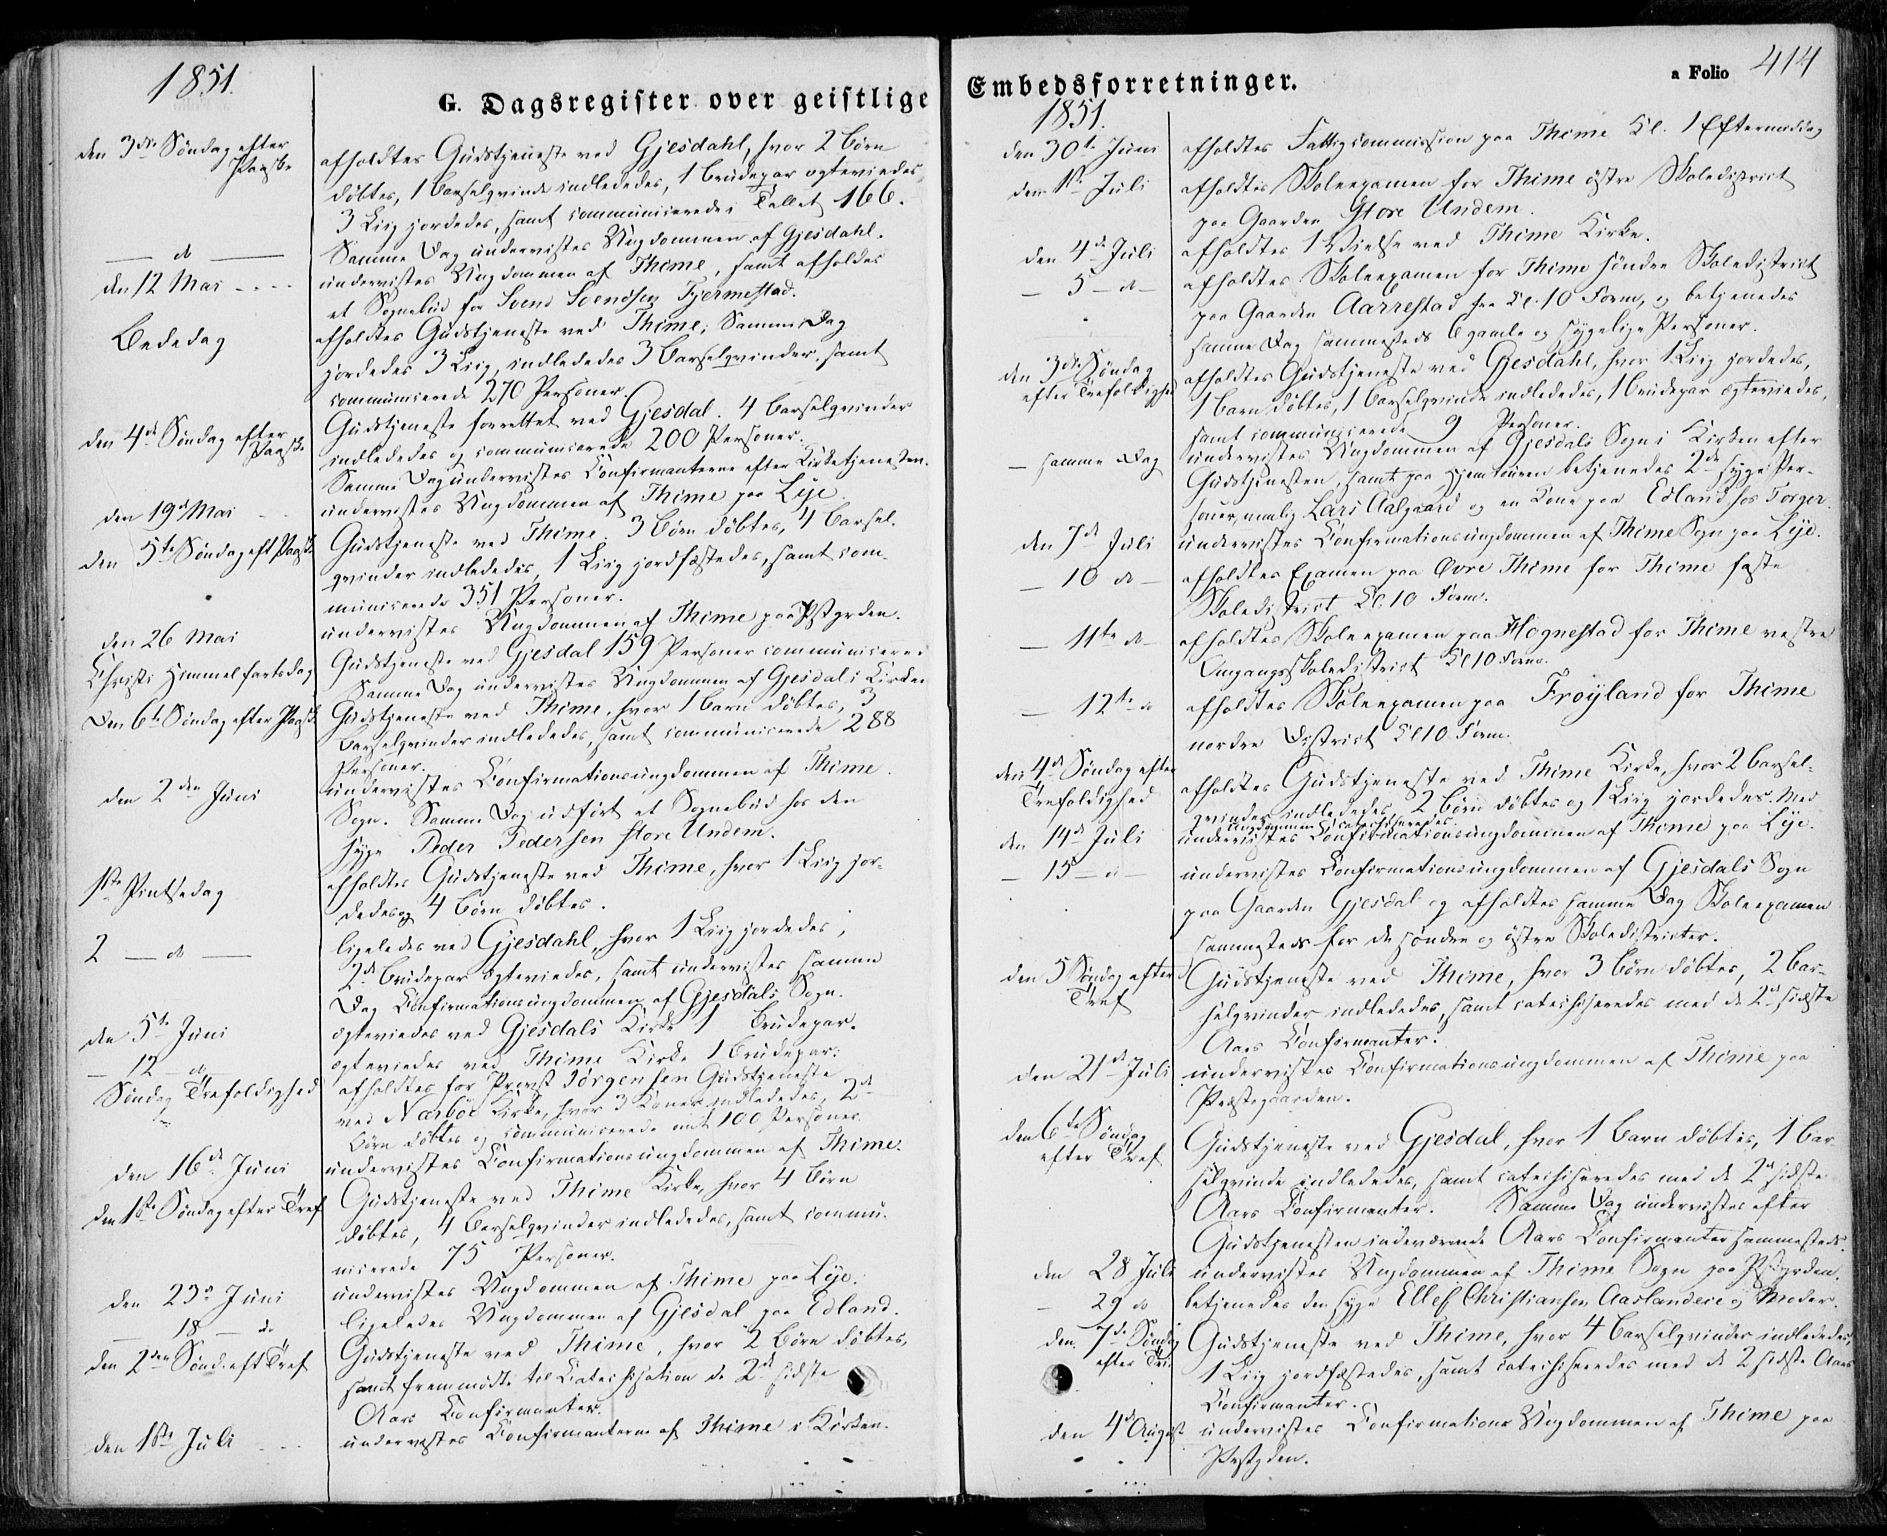 1851.
G. Dagsregister over geistlige
den 3die Søndag efter Paaske
afholdtes Gudstjeneste ved Gjesdahl, hvor 2 Børn
døbtes, 1 Barselqvinde indlededes, 1 Brudepar ægteviedes
3 Liig jordedes, samt communicerede i Tallet 166.
— do —
Samme Dag undervistes Ungdommen af Gjesdahl.
den 12 Mai
undervistes Ungdommen af Thime, samt afholdes
et Sognebud for Svend Svendsen Tjermestad.
Bededag
afholdtes Gudstjeneste ved Thime; Samme Dag
jordedes 3 Liig, indlededes 3 Barselqvinder, samt
communicerede 270 Personer.
den 4de Søndag efter Paaske
Gudstjeneste forrettet ved Gjesdal. 4 Barselqvinder
indlededes og communicerede 200 Personer.
Samme Dag undervistes Confirmanterne efter Kirketjenesten.
den 19de Mai
undervistes Ungdommen af Thime paa Lye.
den 5te Søndag eft Paaske
Gudstjeneste ved Thime. 3 Børn døbtes, 4 Barsel-
qvinder indlededes, 1 Liig jordfæstedes, samt com-
municerede 351 Personer.
den 26 Mai
undervistes Ungdommen af Thime paa Pstgrden.
Christi Himmelfartsdag
Gudstjeneste ved Gjesdal 159 Personer communicerede
Samme Dag undervistes Ungdommen af Gjesdal i Kirken
Den 6te Søndag efter Paaske
Gudstjeneste ved Thime, hvor 1 Barn døbtes, 3
Barselqvinder indlededes, samt communicerede 288
Personer.
den 2den Juni
undervistes Confirmationsungdommen af Thime
Sogn. Samme Dag udført et Sognebud hos den
syge Peder Pedersen Store Undem.
1ste Pintsedag
afholdtes Gudstjeneste ved Thime, hvor 1 Liig jor-
dedes og 4 Børn døbtes.
2 — do —
ligeledes ved Gjesdahl, hvor 1 Liig jordedes,
2de Brudepar ægteviedes, samt undervistes samme
Dag Confirmationsungdommen af Gjesdals Sogn.
den 5te Juni
ægteviedes ved Gjesdals Kirke 1 Brudepar.
— 12 — do
ægteviedes ved Thime Kirke 1 Brudepar.
Søndag Trefoldighed
afholdtes for Provst Jørgensen Gudstjeneste
ved Nærbøe Kirke, hvor 3 Koner indlededes, 2de
Børn døbtes og communicerede omt 100 Personer.
den 16de Juni
undervistes Confirmationsungdommen af Thime.
den 1ste Søndag efter Tref
Gudstjeneste ved Thime Kirke, hvor 4 Børn
døbtes, 4 Barselqvinder indlededes, samt commu-
nicerede 75 Personer.
den 23de Juni
undervistes Ungdommen af Thime paa Lye.
— 18 — do
ligeledes Ungdommen af Gjesdal paa Edland.
den 2den Sønd. eft Tref
Gudstjeneste ved Thime, hvor 2 Børn døbtes,
samt fremmødte til Catechisation de 2de sidste
Aars Confirmanter.
den 1ste Juli
undervistes Confirmanterne af Thime i Kirken.
Embedsforretninger.
a Folio 414
1851.
den 30te Juni
afholdtes Fattigcommission paa Thime Kl. 1 Eftermiddag
den 1ste Juli
afholdtes Skoleexamen for Thime østre Skoledistrict
paa Gaarden Store Undem.
den 4de Juli
afholdtes 1 Vielse ved Thime Kirke.
— 5 — do —
afholdtes Skoleexamen for Thime søndre Skoledistrict
paa Gaarden Aarrestad fra Kl. 10 Form, og betjenedes
samme Dag sammesteds 6 gamle og sygelige Personer.
den 3die Søndag
efter Trefoldighed
afholdtes Gudstjeneste ved Gjesdahl, hvor 1 Liig jordedes,
1 Barn døbtes, 1 Barselqvinde indlededes, 1 Brudepar ægteviedes,
samt communicerede 9 Personer.
— samme Dag
undervistes Ungdommen af Gjesdals Sogn i Kirken efter
Gudstjenesten, samt paa Hjemturen betjenedes 2de syge Per-
soner, nemlig Lars Aalgaard og en Kone paa Edland hos Torger.
den 7de Juli
undervistes Confirmationsungdommen af Thime Sogn paa Lye.
— 10 do —
afholdtes Examen paa Øvre Thime for Thime faste
Skoledistrict Kl. 10 Form.
— 11te do —
afholdtes Skoleexamen paa Hognestad for Thime vestre
Omgangsskoledistrict Kl 10 Form.
— 12te do
afholdtes Skoleexamen paa Frøyland for Thime
nordre District Kl 10 Form.
den 4de Søndag efter
Trefoldighed
afholdtes Gudstjeneste ved Thime Kirke, hvor 2 Barsel-
qvinder indlededes, 2 Børn døbtes og 1 Liig jordedes. Med
Ungdommen catechiseredes.
den 14de Juli
undervistes Confirmationsungdommen af Thime paa Lye.
— 15 — do —
undervistes Confirmationsungdommen af Gjesdals Sogn
paa Gaarden Gjesdal og afholdtes samme Dag Skoleexamen
sammesteds for de søndre og østre Skoledistricter.
den 5 Søndag efter
Tref
Gudstjeneste ved Thime, hvor 3 Børn døbtes, 2 Bar-
selqvinder indlededes, samt catechiseredes med de 2de sidste
Aars Confirmanter.
den 21de Juli
undervistes Confirmationsungdommen af Thime paa
Præstegaarden.
den 6te Søndag
efter Tref
Gudstjeneste ved Gjesdal, hvor 1 Barn døbtes, 1 Bar
selqvinde indlededes, samt catechiseredes med de 2de sidste
Aars Confirmanter. Samme Dag undervistes efter
Gudstjenesten indeværende Aars Confirmanter sammesteds.
den 28 Juli
undervistes Ungdommen af Thime Sogn paa Pstgrden.
— 29 do
betjenedes den syge Ellef Christiansen Aaslandeie og Moder.
den 7de Søndag
efter Tr.
Gudstjeneste ved Thime, hvor 4 Barselqvinder indlededes,
1 Liig jordfæstedes, samt catechiseredes med de 2 sidste Aars
Confirmanter.
den 4de August
undervistes Confirmations Ungdommen af Thime paa
Pstgden.